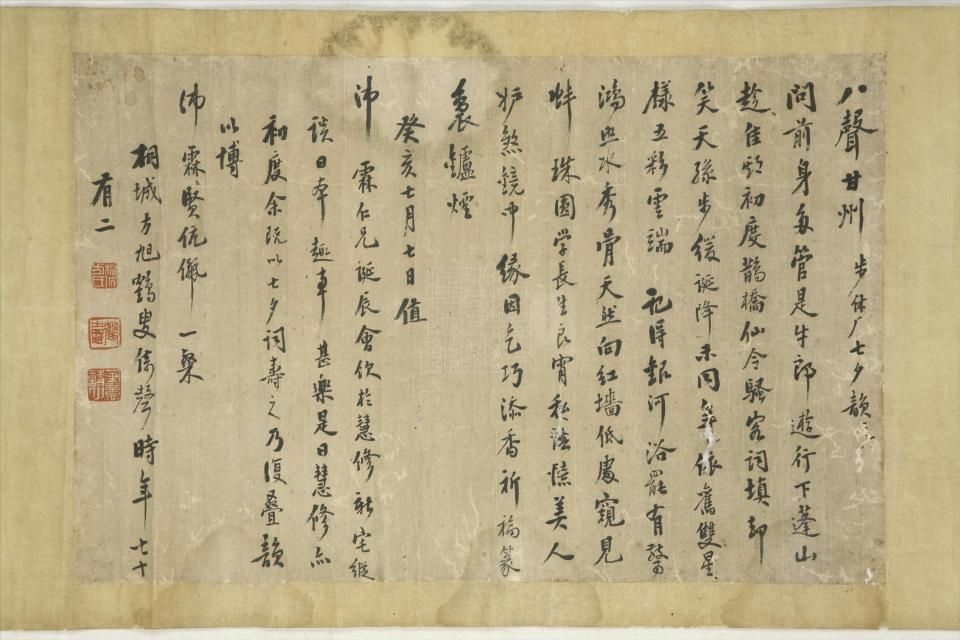 八聲甘州 步休厂七夕韻
問前身多管是牛郎遊行下蓬山
趁佳期初度鵲橋仙令騷客詞填却
笑天孫步緩誕降未同年依舊雙星
樣五彩雲端 記得銀河浴罷有驚
鴻照水秀骨天然向紅墻低處窺見
蚌珠圓学長生良宵私語憶美人
妒煞鏡中緣因乞巧添香祈福篆
裊鑪煙
癸亥七月七日值
沛霖仁兄誕辰會飲於慧修新宅縱
談日本趣事甚樂是日慧修亦
初度余既以七夕詞壽之乃復疊韻
以博
沛霖賢伉儷一粲
桐城方旭鶴叟倚聲時年七十
有二